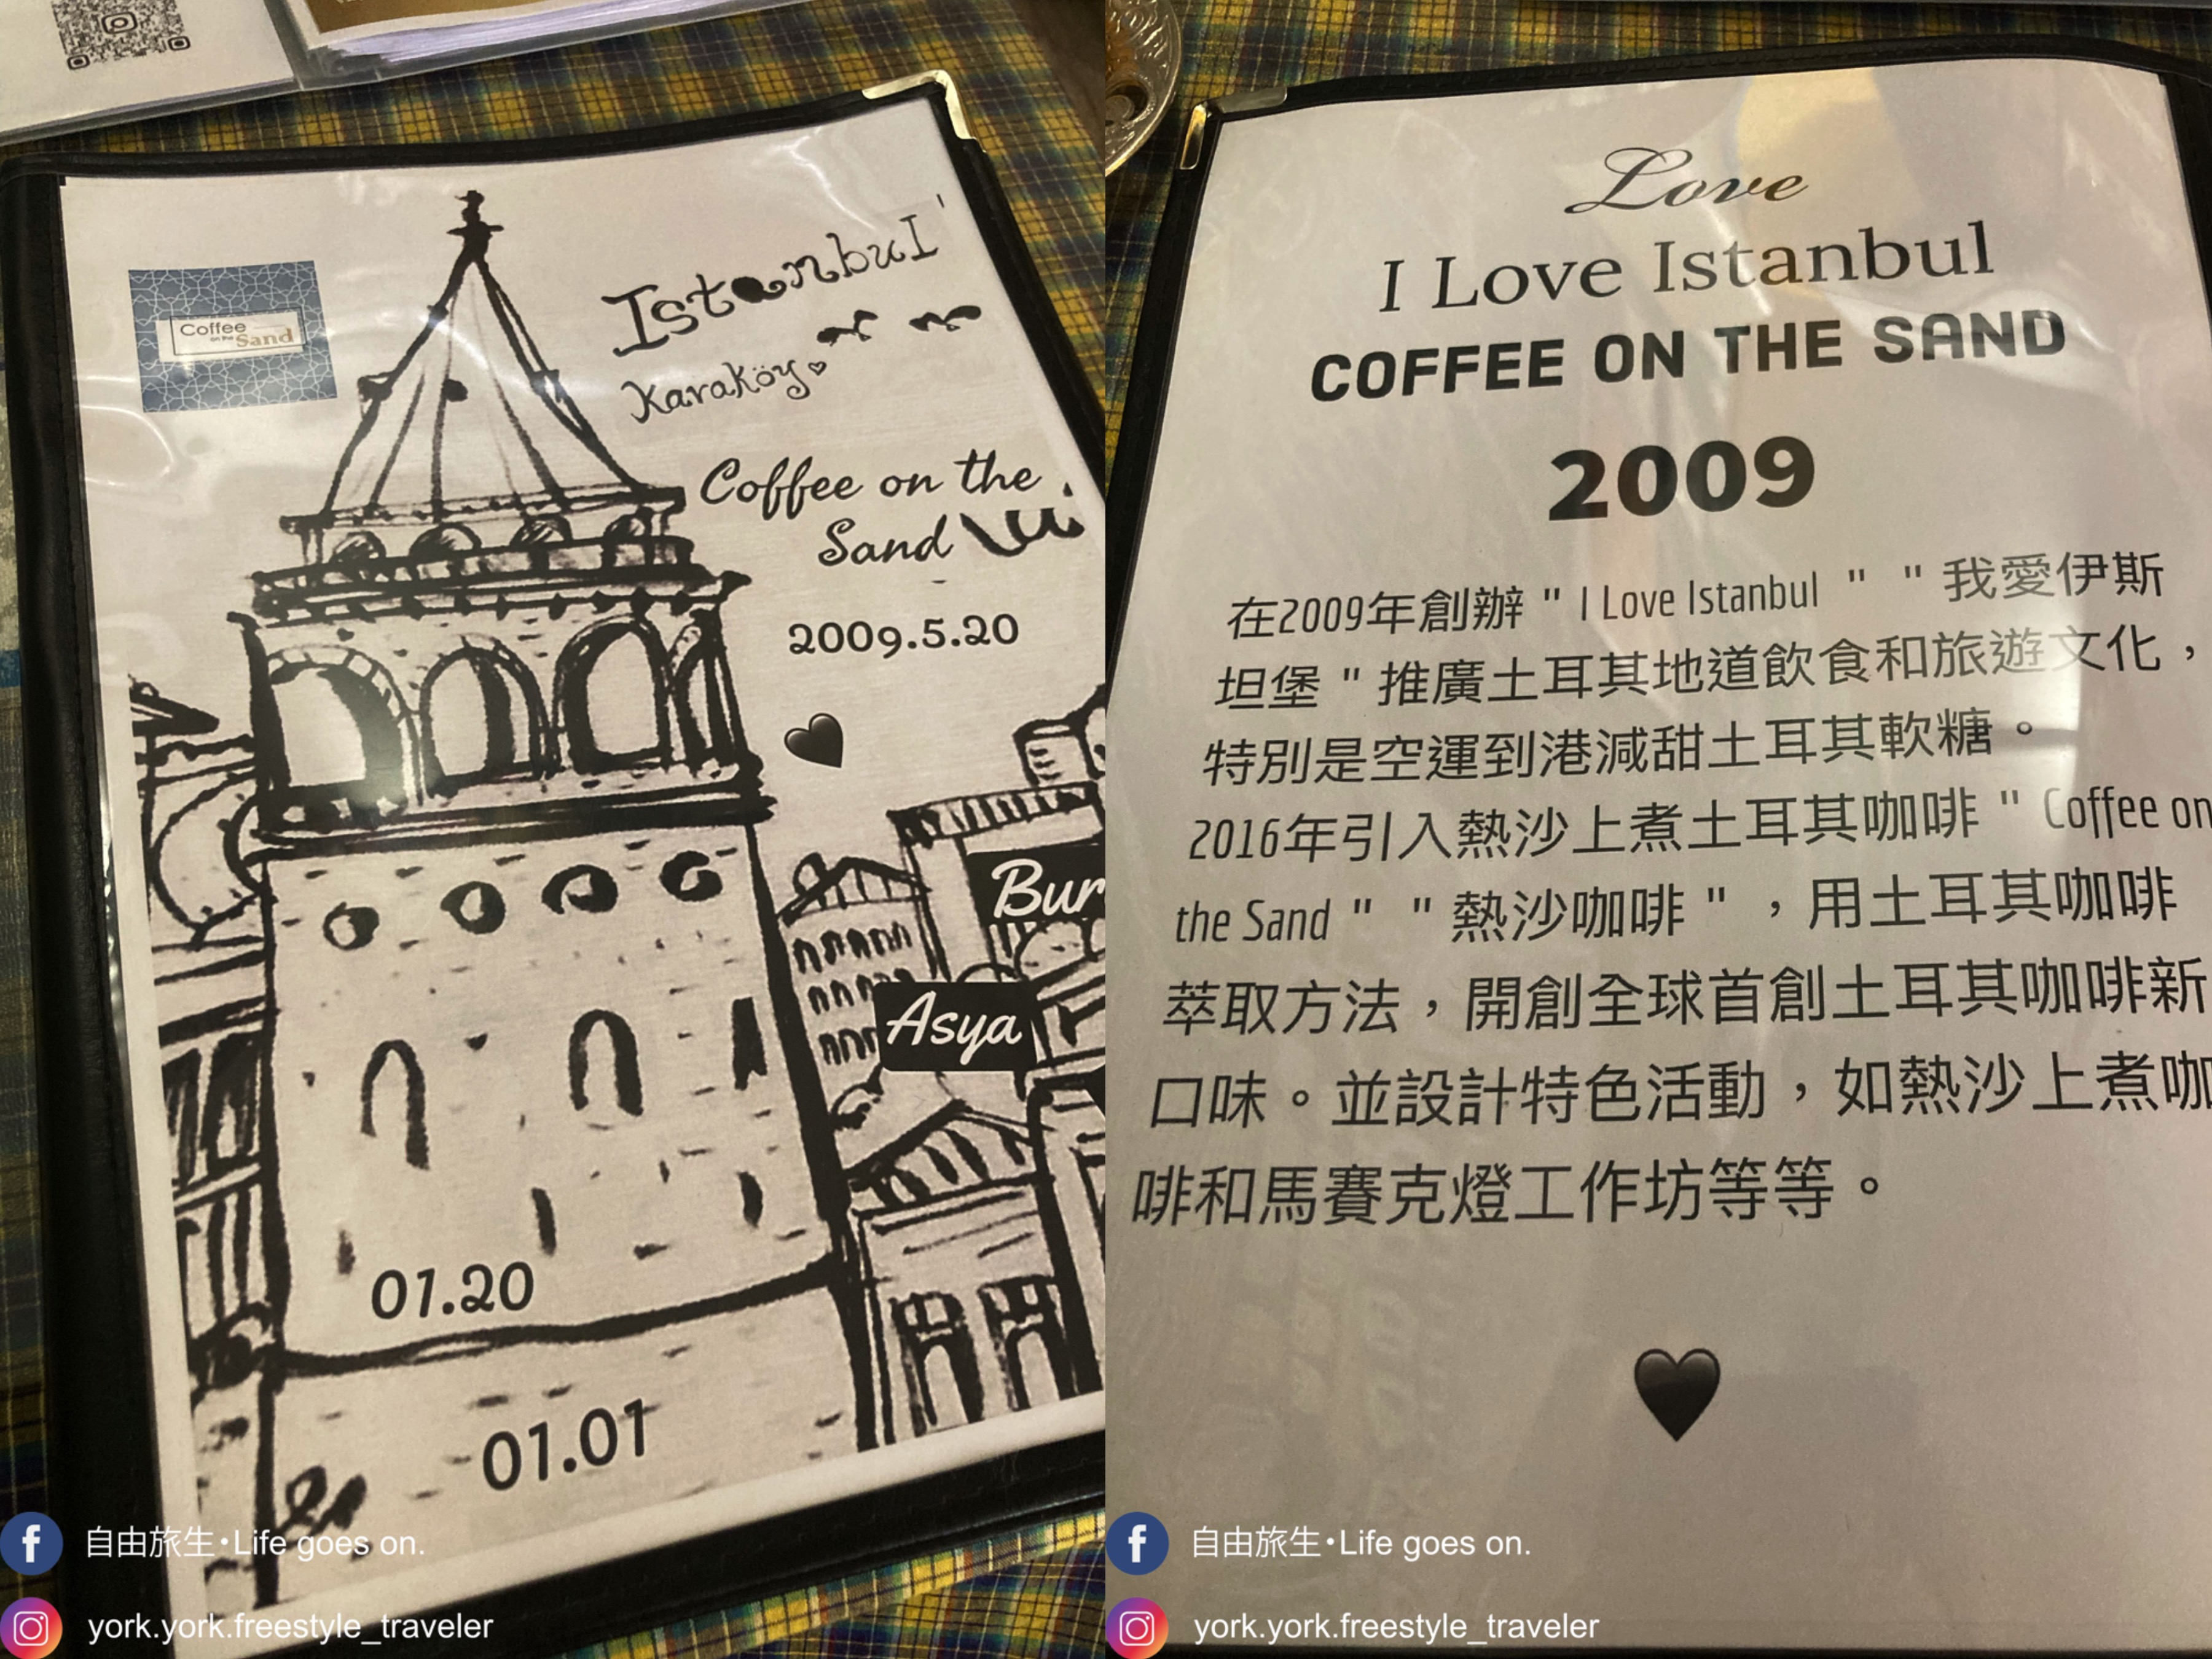 Coffee
on the Sand
Istanbul
Karaköy
Coffee on the
Sand
2009.5.20
Asya
01.20
01.01
自由旅生•Life goes on.
york.york.freestyle_traveler
Love
I Love Istanbul
COFFEE ON THE SAND
2009
在2009年創辦 " I Love Istanbul " " 我愛伊斯
坦堡 " 推廣土耳其地道飲食和旅遊文化，
特別是空運到港減甜土耳其軟糖。
2016年引入熱沙上煮土耳其咖啡 " Coffee on
the Sand " " 熱沙咖啡 " ，用土耳其咖啡
萃取方法，開創全球首創土耳其咖啡新
口味。並設計特色活動，如熱沙上煮咖
啡和馬賽克燈工作坊等等。
自由旅生•Life goes on.
york.york.freestyle_traveler